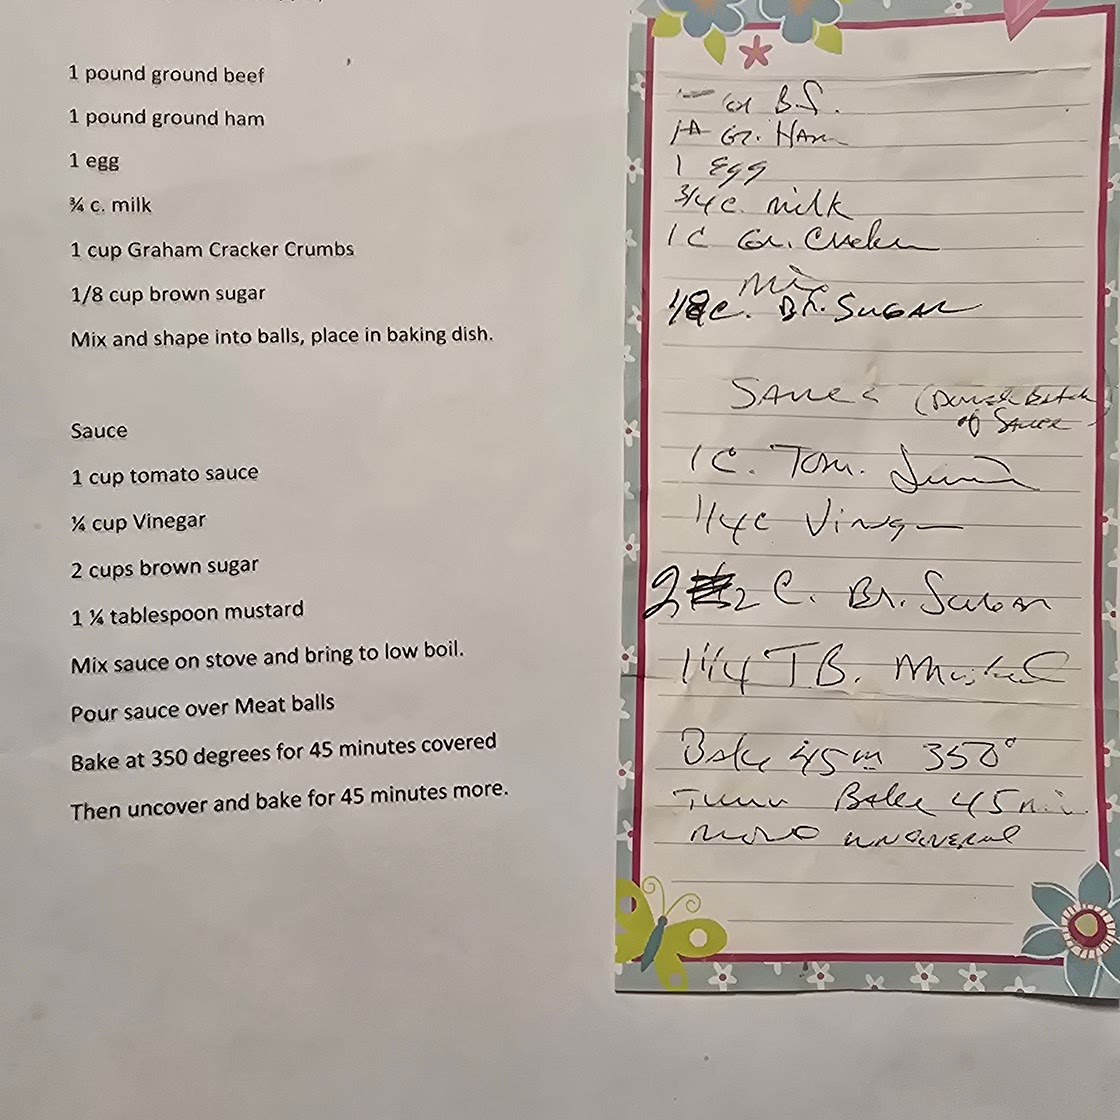 1 pound ground beef
1 pound ground ham
1 egg
¾ c. milk
1 cup Graham Cracker Crumbs
1/8 cup brown sugar
Mix and shape into balls, place in baking dish.
Sauce
1 cup tomato sauce
¼ cup Vinegar
2 cups brown sugar
1 ¼ tablespoon mustard
Mix sauce on stove and bring to low boil.
Pour sauce over Meat balls
Bake at 350 degrees for 45 minutes covered
Then uncover and bake for 45 minutes more.
Gr. Ham
1 Egg
3/4 c. milk
1 C Gr. Cracker
Mix
1/8 c. Br. Sugar
Sauce
of Sauce
1 C. Tom.
1/4 c Vinegar
2 C. Br. Sugar
1 1/4 TB. Mustard
Bake 45 m 350°
Turn Bake 45 min
more uncovered